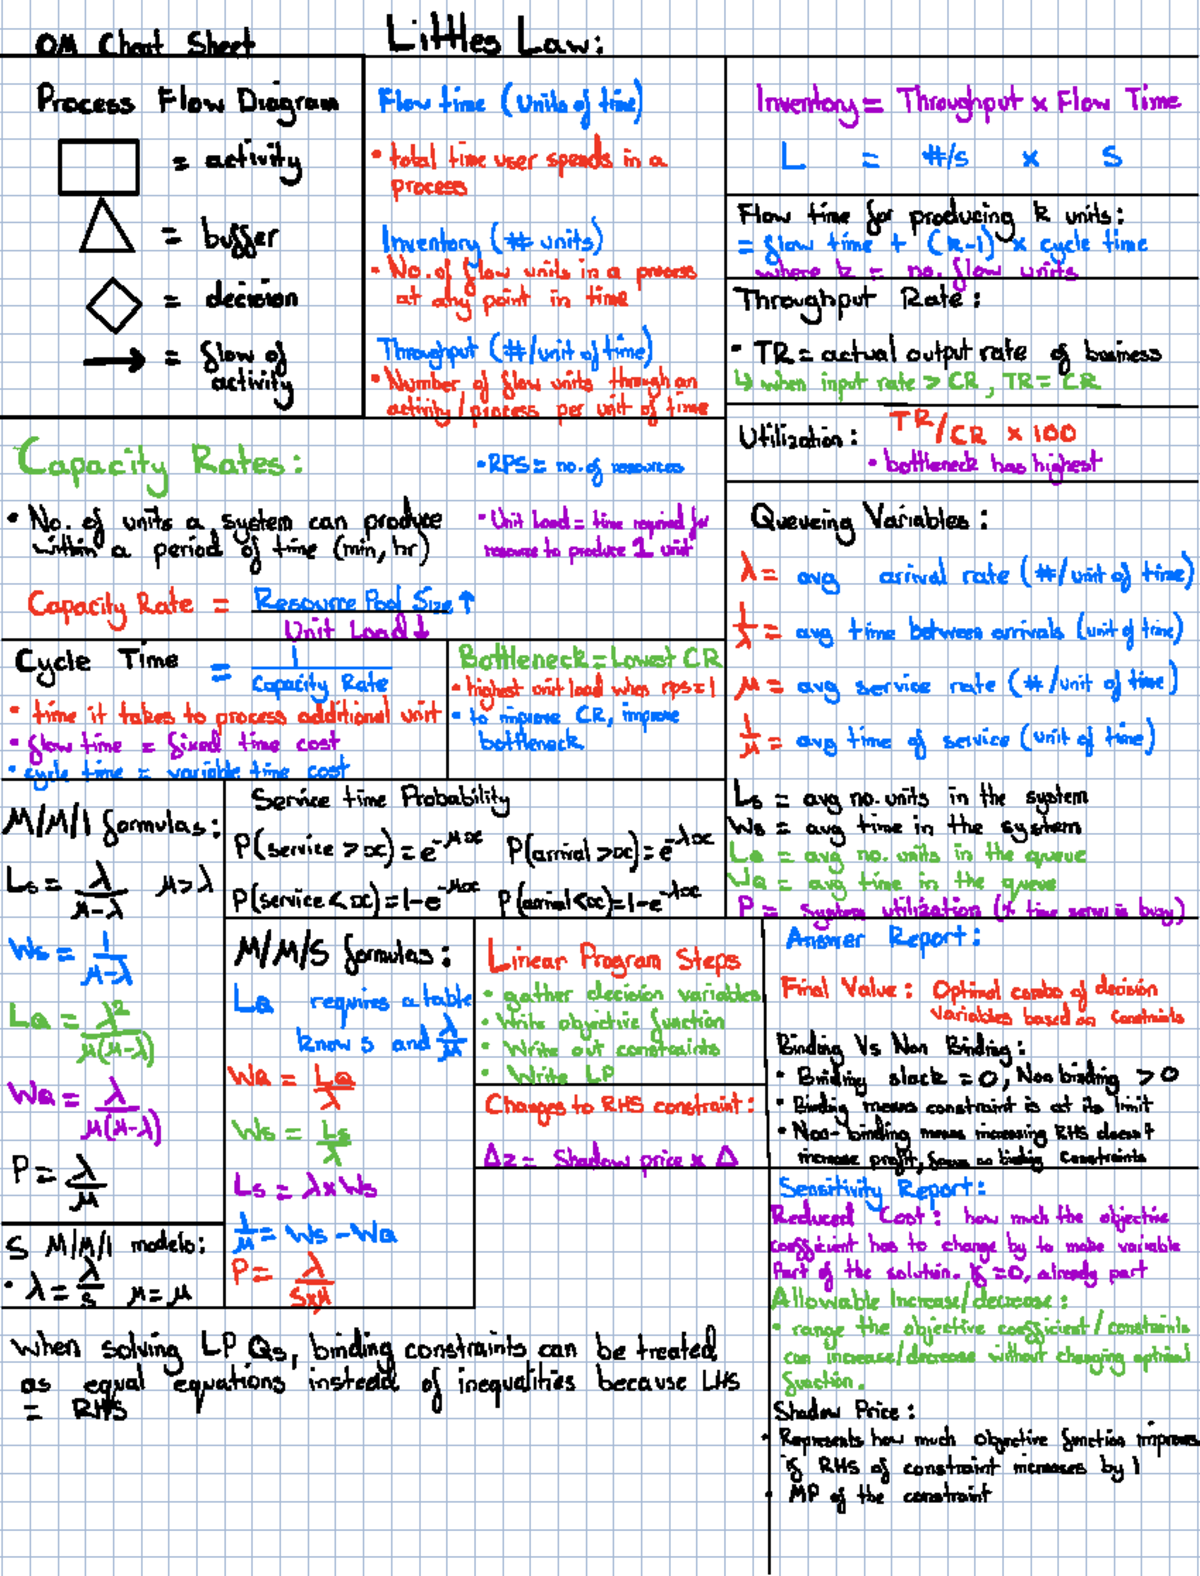 OM Cheat Sheet
Littles Law:
Process Flow Diagram
= activity
= buffer
= decision
= flow of
activity
Flow time (Units of time)
• total time user spends in a
process
Inventory (# units)
• No. of flow units in a process
at any point in time
Throughput (#/unit of time)
• Number of flow units through an
activity/process per unit of time
Inventory = Throughput x Flow Time
L = #/s x S
Flow time for producing k units:
= flow time + (k-1) x cycle time
where k = no. flow units
Throughput Rate:
• TR = actual output rate of business
↳ when input rate > CR, TR = CR
Utilization: TR/CR x 100
• bottleneck has highest
Capacity Rates:
• RPS = no. of resources
• No. of units a system can produce
within a period of time (min, hr)
• Unit Load = time required for
resource to produce 1 unit
Capacity Rate = Resource Pool Size ↑
Unit Load ↓
Cycle Time = 1
Capacity Rate
• time it takes to process additional unit
• flow time = fixed time cost
• cycle time = variable time cost
Bottleneck = Lowest CR
• highest unit load when rps=1
• to improve CR, improve
bottleneck
Queueing Variables:
λ = avg arrival rate (#/unit of time)
1/λ = avg time between arrivals (unit of time)
μ = avg service rate (#/unit of time)
1/μ = avg time of service (unit of time)
Ls = avg no. units in the system
Ws = avg time in the system
LQ = avg no. units in the queue
WQ = avg time in the queue
P = System utilization (% time server is busy)
M/M/1 formulas:
Ls = λ/(μ-λ) μ>λ
Ws = 1/(μ-λ)
LQ = λ²/(μ(μ-λ))
WQ = λ/(μ(μ-λ))
P = λ/μ
S M/M/1 models:
• λ = λ/s μ=μ
Service time Probability
P(service > x) = e^-μx P(arrival > x) = e^-λx
P(service < x) = 1-e^-μx P(arrival < x) = 1-e^-λx
M/M/S formulas:
LQ requires a table
know s and λ/μ
WQ = LQ/λ
Ws = Ls/λ
Ls = λ x Ws
1/μ = Ws - WQ
P = λ/(sxμ)
Linear Program Steps
• gather decision variables
• Write objective function
• Write out constraints
• Write LP
Changes to RHS constraint:
Δz = Shadow price x Δ
Answer Report:
Final Value: Optimal combo of decision
variables based on constraints
Binding Vs Non Binding:
• Binding slack = 0, Non binding > 0
• Binding means constraint is at its limit
• Non-binding means increasing RHS doesn't
increase profit, focus on binding constraints
Sensitivity Report:
Reduced Cost: how much the objective
coefficient has to change by to make variable
part of the solution. If =0, already part
Allowable Increase/decrease:
• range the objective coefficient/constraints
can increase/decrease without changing optimal
function.
Shadow Price:
• Represents how much objective function improves
if RHS of constraint increases by 1
• MP of the constraint
When solving LP Qs, binding constraints can be treated
as equal equations instead of inequalities because LHS
= RHS